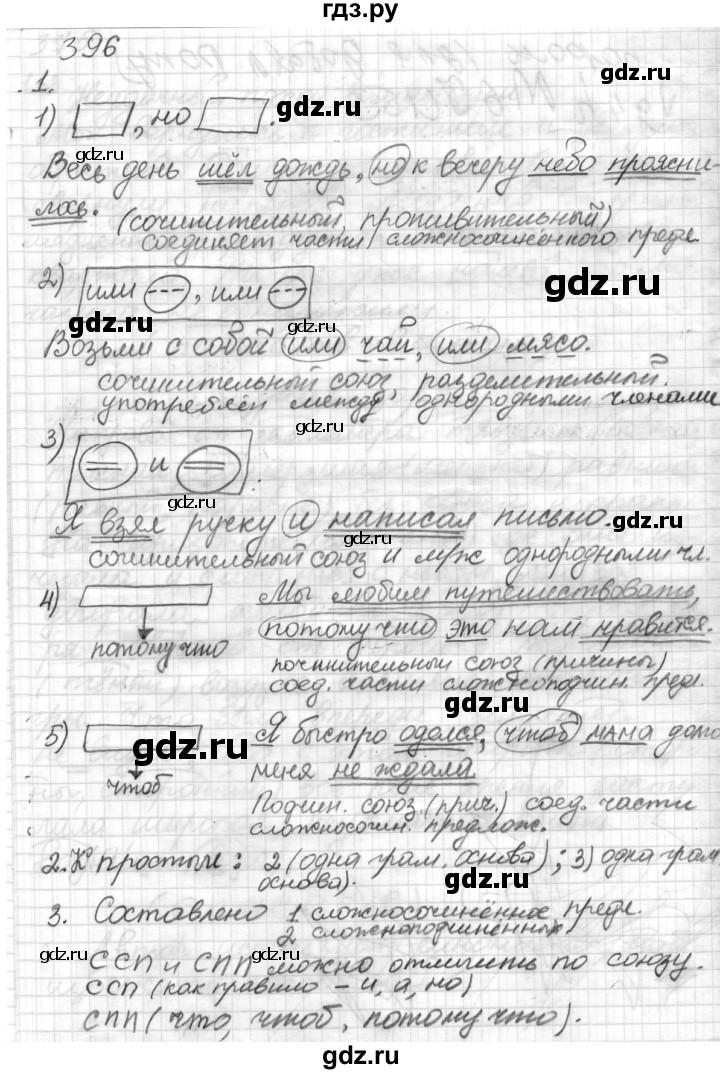 гдз.ру
396
1.
1) , но .
gdz.ru
gdz.ru
Весь день шёл дождь, но к вечеру небо проясни-
gdz.ru
лось. (сочинительный, противительный)
соединяет части сложносочинённого предл.
gdz.ru
2) или , или
gdz.ru
gdz.ru
Возьми с собой или чай, или мясо.
gdz.ru
сочинительный союз, разделительный.
употреблён между однородными членами
3) и .
gdz.ru
gdz.ru
Я взял ручку и написал письмо.
gdz.ru
сочинительный союз и м/ж однородными чл.
4) Мы любим путешествовать,
gdz.ru
потому что потому что это нам нравится.
gdz.ru
подчинительный союз (причины)
соед. части сложноподчин. предл.
gdz.ru
5) Я быстро оделся, чтоб мама дома
gdz.ru
чтоб меня не ждала.
gdz.ru
Подчин. союз (прич.) соед. части
сложносочин. предлож.
gdz.ru
2. К простым: 2 (одна грам. основа); 3) одна грам.
gdz.ru
основа).
3. Составлено 1 сложносочинённое предл.
gdz.ru
2 сложноподчинённых
ССП и СПП можно отличить по союзу.
gdz.ru
ССП (как правило – и, а, но)
gdz.ru
СПП (что, чтоб, потому что).
gdz.ru
gdz.ru